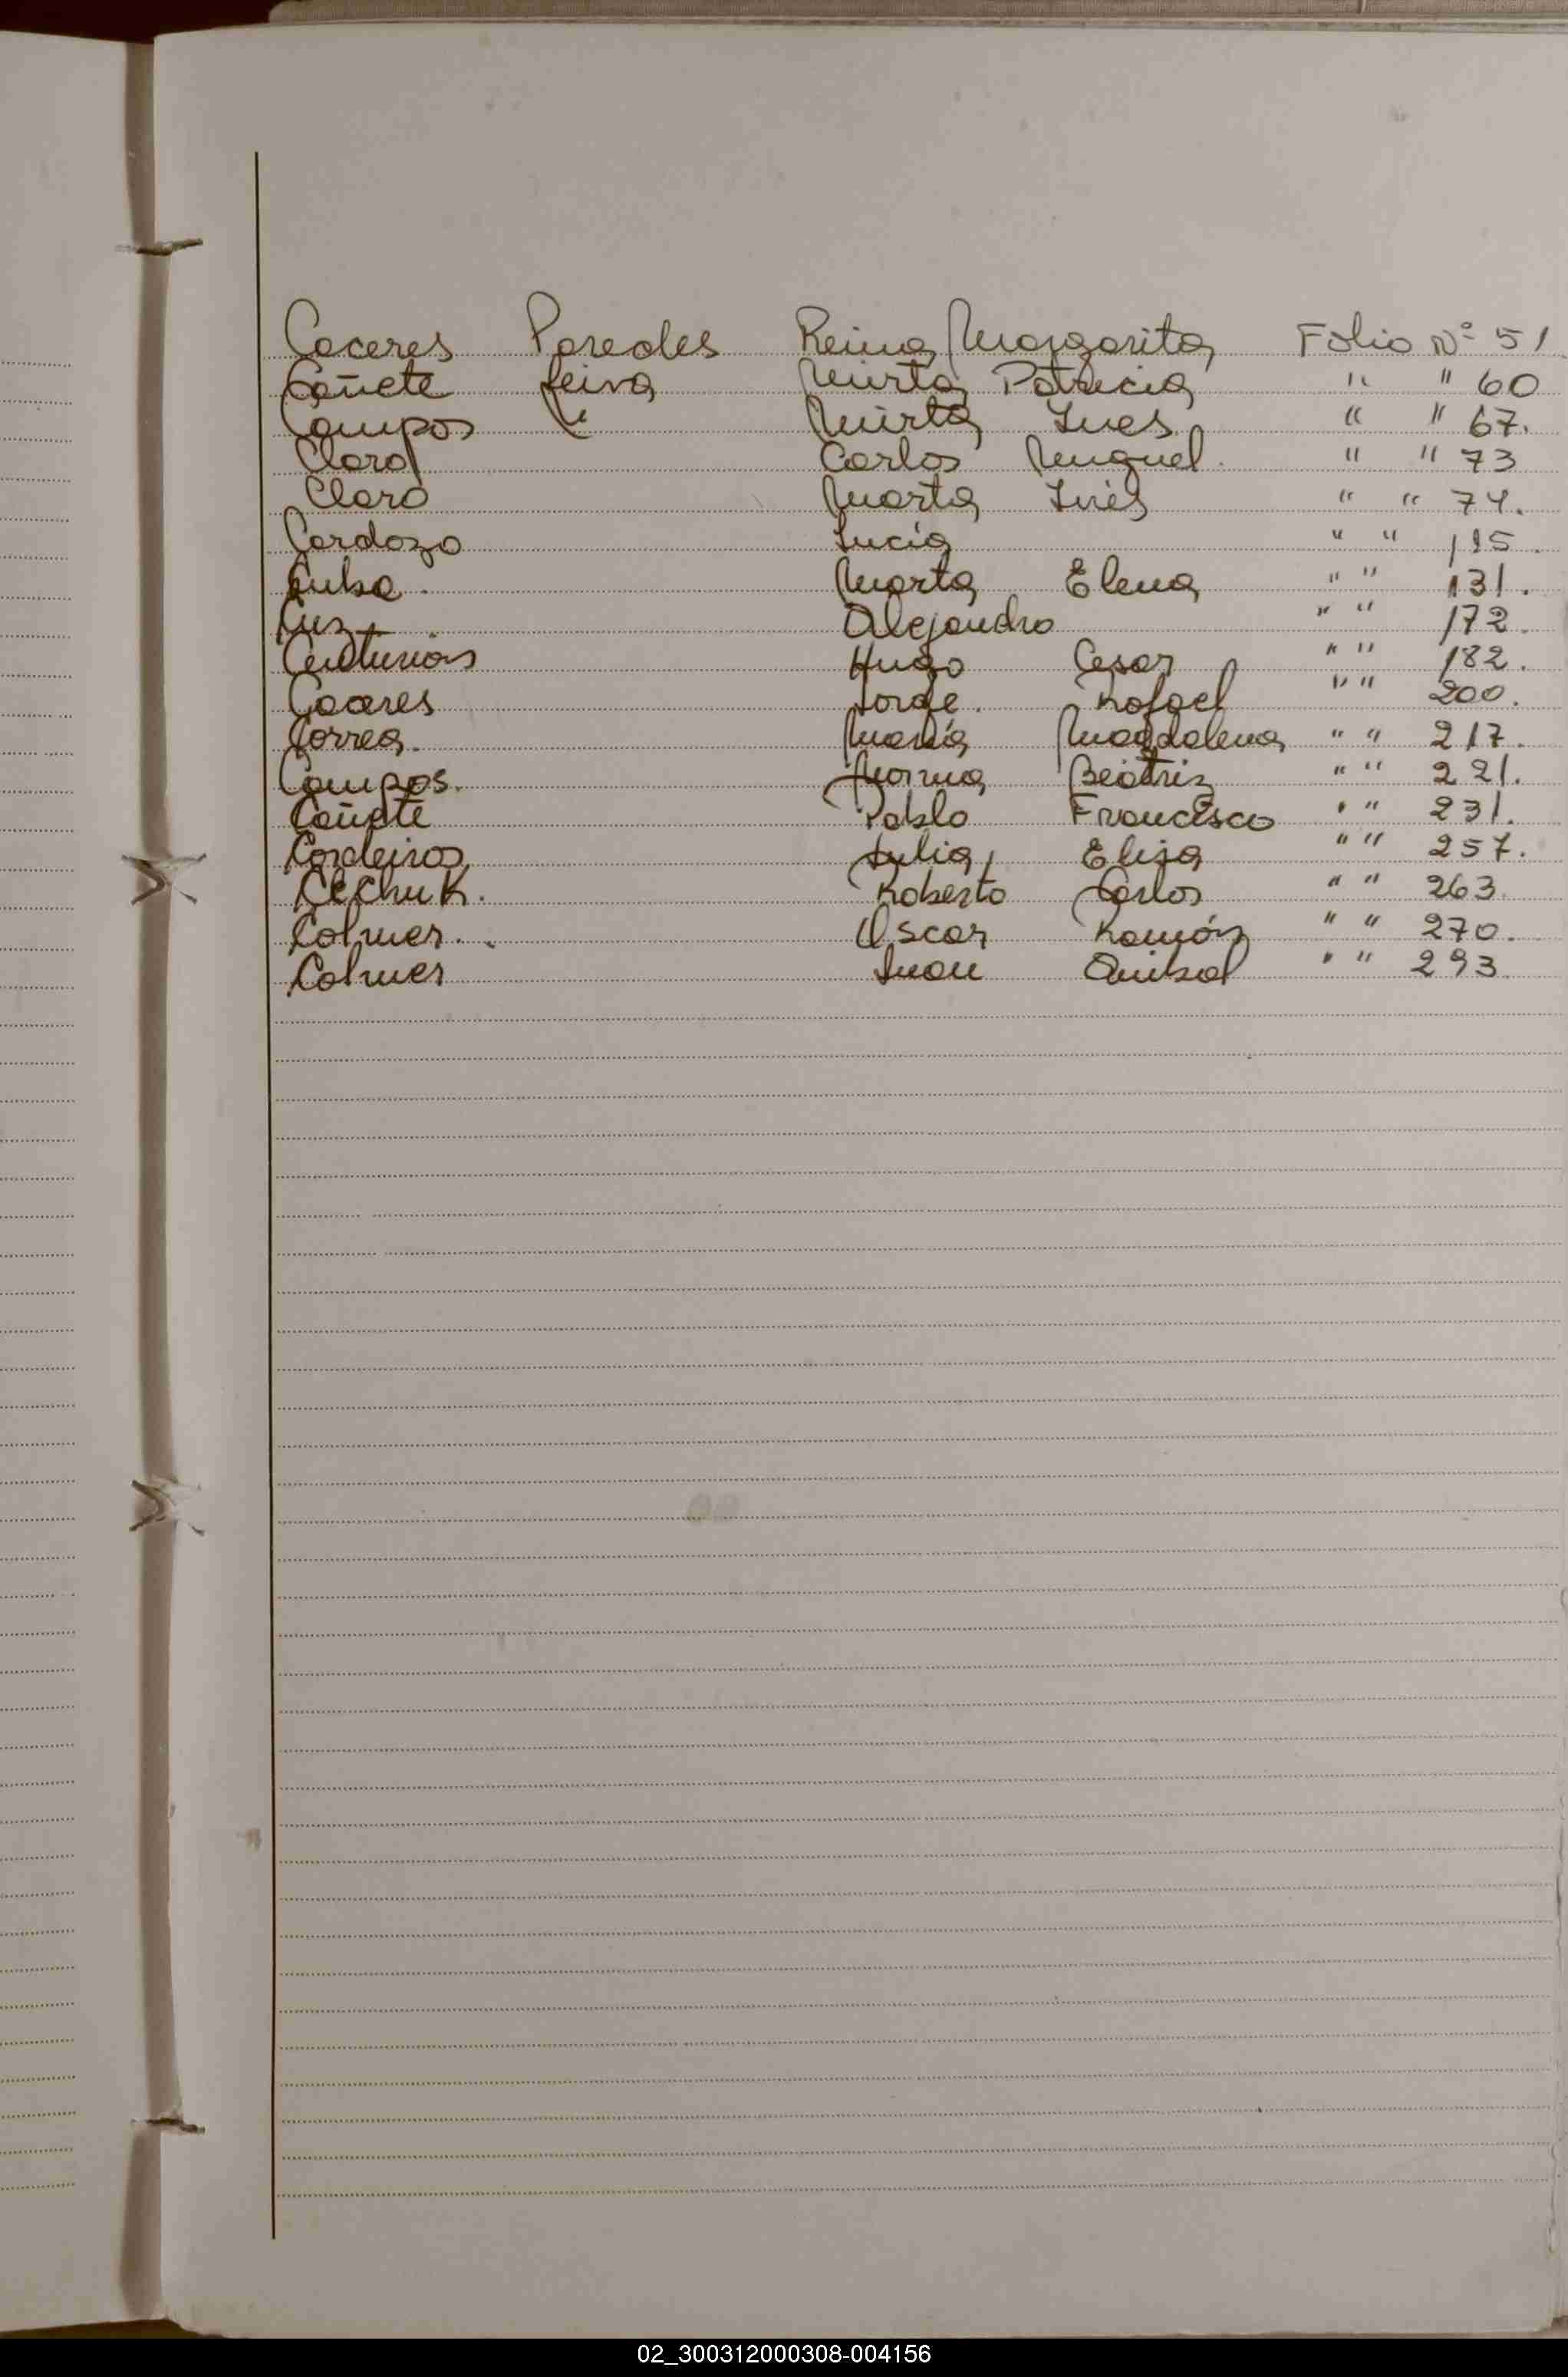 Caceres Paredes Reina Margarita Folio Nº 51
Cañete Leiva Mirta Patricia " " 60
Campos Mirta Ines " " 67.
Claro Carlos Miguel. " " 73
Claro Marta Inés " " 74.
Cardozo Lucia " " 115.
Cuba. Marta Elena " " 131.
Cuz. Alejandro " " 172.
Centurion Hugo Cesar " " 182.
Caceres Jorge. Rafael " " 200.
Correa. María Magdalena " " 217.
Campos. Norma Beatriz " " 221.
Cañete Pablo Francisco " " 231.
Cordeiro Julia, Elisa " " 257.
Clechuk. Roberto Carlos " " 263.
Colmer. Oscar Ramón " " 270.
Colmer Juan Anibal " " 293.
02_300312000308-004156